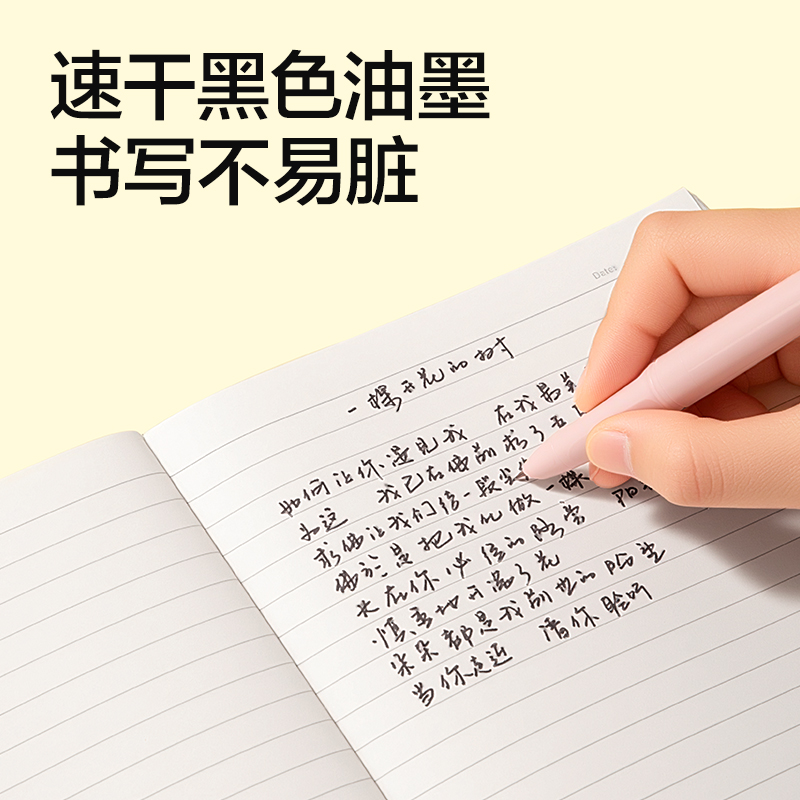 速干黑色油墨
书写不易脏
Date:
一棵开花的树
如何让你遇见我 在我最美
为这 我已在佛前求了五
求佛让我们结一段尘
佛於是把我化做一棵
长在你必经的路旁 阳
慎重地开满了花
朵朵都是我前世的盼望
当你走近 请你聆听